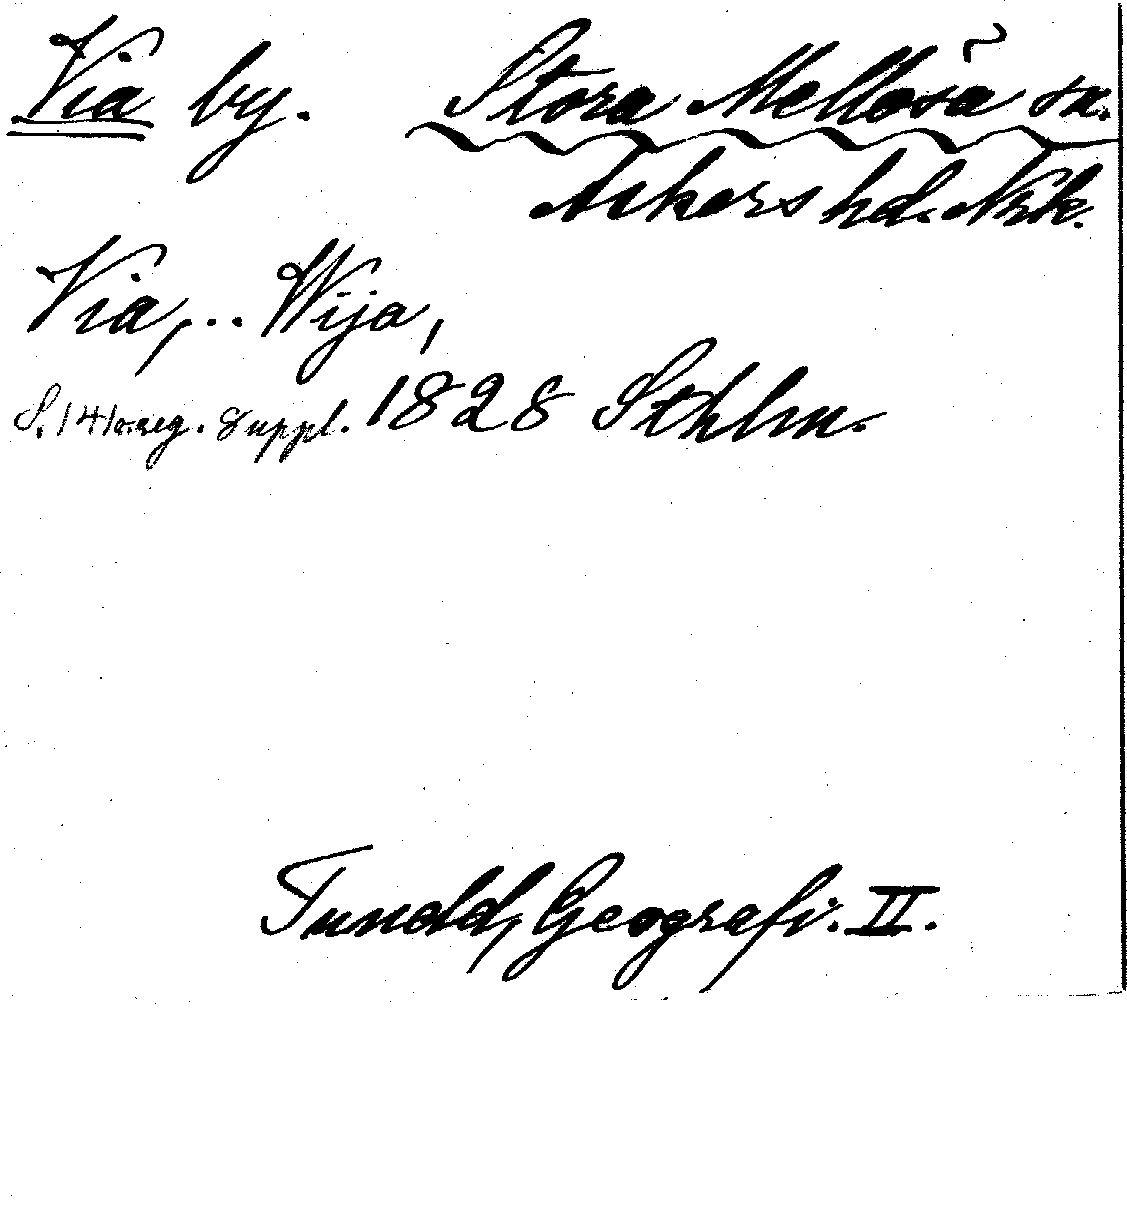 Via by. Stora Mellösa sn.
Askers hd. Nrk.
Via, .. Wija,
S. 141 o. reg. Suppl. 1828 Sthlm.
Tunold, Geografi. II.